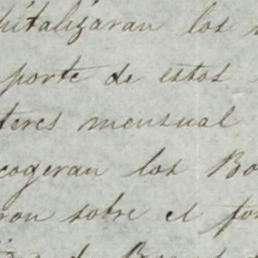 pitalizaran los
porte de estos
teres mensual
cogeran los Bo
ron sobre el fon
de